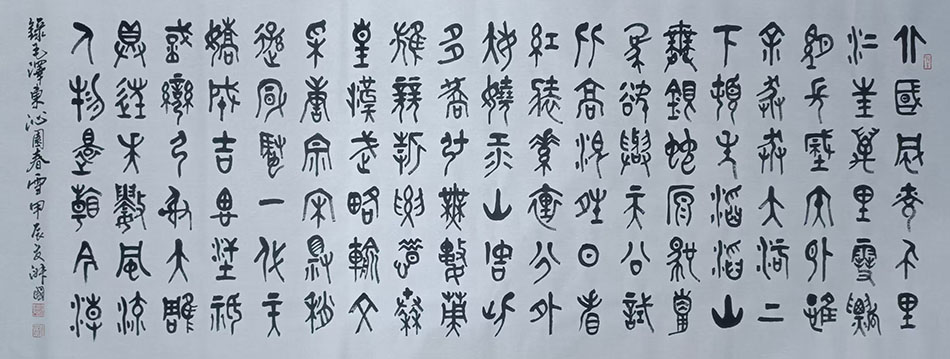 北國風光千里
冰封萬里雪飄
望長城內外惟
余莽莽大河上
下頓失滔滔山
舞銀蛇原馳蠟
象欲與天公試
比高須晴日看
紅裝素裹分外
妖嬈江山如此
多嬌引無數英
雄競折腰惜秦
皇漢武略輸文
采唐宗宋祖稍
遜風騷一代天
驕成吉思汗祇
識彎弓射大雕
俱往矣數風流
人物還看今朝
錄毛澤東沁園春雪甲辰夏國